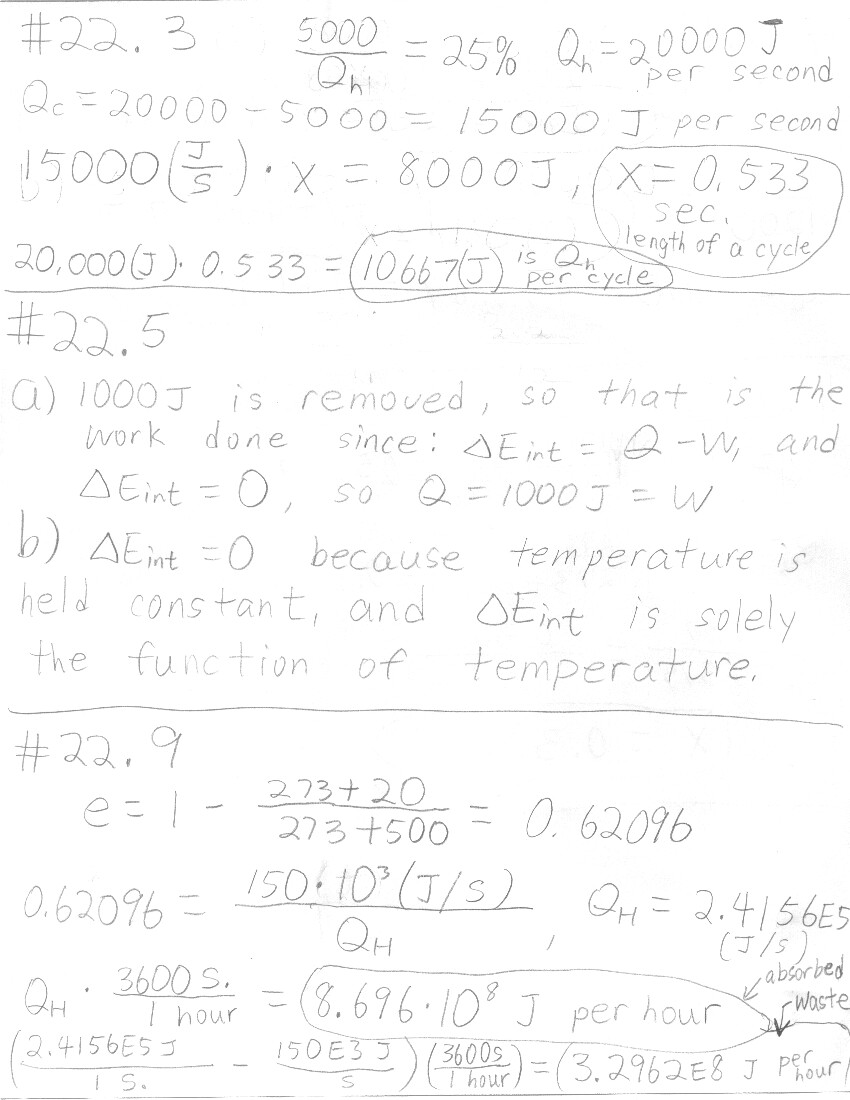 #22.3 5000/Qh = 25% Qh = 20000 J per second
Qc = 20000 - 5000 = 15000 J per second
15000 (J/S) · x = 8000J, x = 0.533 sec. length of a cycle
20,000(J) · 0.533 = 10667(J) is Qh per cycle
#22.5
a) 1000J is removed, so that is the
work done since: ΔEint = Q - W, and
ΔEint = 0, so Q = 1000J = W
b) ΔEint = 0 because temperature is
held constant, and ΔEint is solely
the function of temperature.
#22.9
e = 1 - (273+20)/(273+500) = 0.62096
0.62096 = 150·10³ (J/S)/QH, QH = 2.4156E5 (J/s)
QH · 3600 S./1 hour = 8.696·10⁸ J per hour absorbed
(2.4156E5 J/1 S. - 150E3 J/S)(3600s/1 hour) = 3.2962E8 J per hour waste